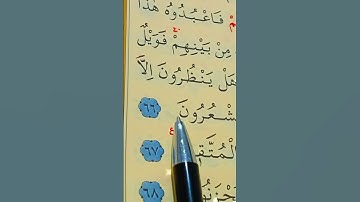 فَاعْبُدُوهُ هٰذَا
مِنْ بَيْنِهِمْ فَوَيْلٌ
هَلْ يَنْظُرُونَ اِلَّا
شْعُرُونَ ٦٦
لْمُتَّقٖ ٦٧
٦٨